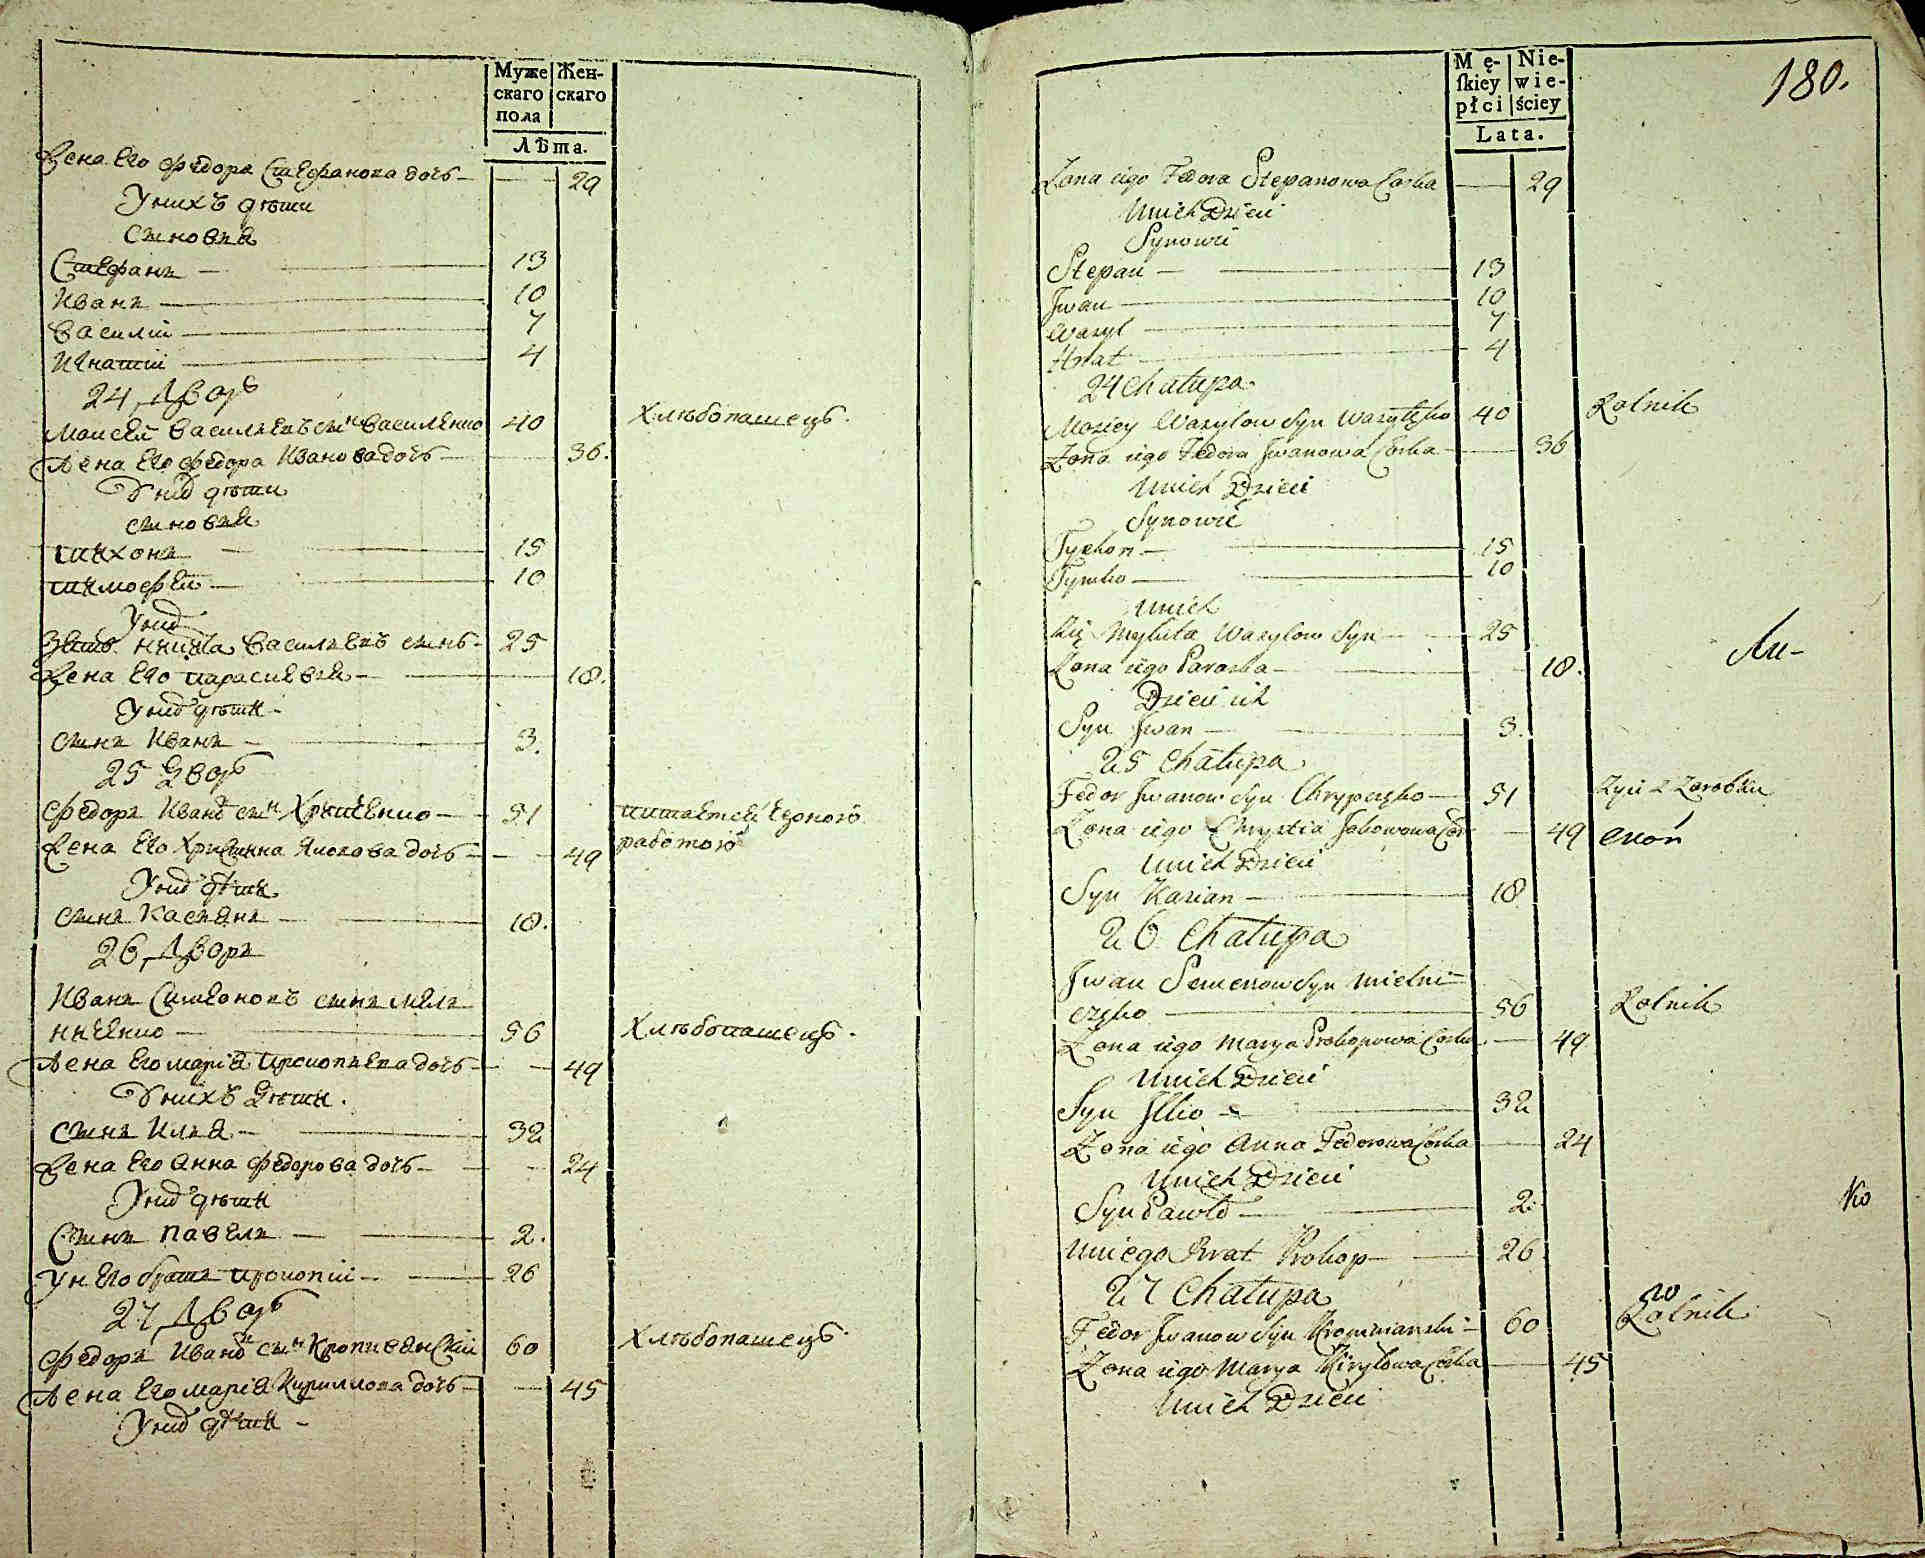 Муже
скаго
пола
Жен-
скаго
Лѣта.
Жена Его Федора Стефанова дочь — 29
У нихъ дѣти
Сыновья
Стефанъ — 13
Иванъ — 10
Василій — 7
Игнатій — 4
24 Дворъ
Моисей Васильевъ сынъ Василенко 40 Хлѣбопашецъ.
Жена Его Федора Иванова дочь — 36.
У нихъ дѣти
сыновья
тихонъ — 15
тимофей — 10
У нихъ
Зять никита Васильевъ сынъ — 25
Жена Его парасковія — 18.
У нихъ дѣти —
сынъ Иванъ — 3.
25 Дворъ
Федоръ Ивановъ сынъ Хрипченко — 51 питается черною
Жена Его Христина Яковова дочь — 49 работою
У нихъ дѣти
сынъ Касіянъ — 18.
26 Дворъ
Иванъ Симеоновъ сынъ мель
ниченко — 56 Хлѣбопашецъ.
Жена Его марія прокопьева дочь — 49
У нихъ Дѣти.
сынъ Илья — 32
Жена Его Анна Федорова дочь — 24
У нихъ дѣти
Сынъ Павелъ — 2.
У нЕго братъ прокопій — 26
27 Дворъ
Федоръ Ивановъ сынъ Кропивянскій 60 Хлѣбопашецъ.
Жена Его марія Кирилова дочь — 45
У нихъ дѣти —
M ę-
ſkiey
płci
Nie-
wie-
ściey
Lata.
180.
Zona iego Fedora Stepanowa Corka — 29
Unich Dzieci
Synowie
Stepan — 13
Jwan — 10
Wasyl — 7
Hnat — 4
24 Chałupa
Mosiey Wasylow Syn Wasylęko 40 Rolnik
Zona iego Fedora Jwanowa Corka — 36
Unich Dzieci
Synowie
Tychon — 15
Tymko — 10
Unich
Mykita Wasylow Syn — 25
Zona iego Paraska — 18.
Dzieci ich
Syn Jwan — 3.
25 Chałupa
Fedor Jwanow Syn Chrypczęko — 51 Zyie z Zarobku
Zona iego Chrystia Jakowowa Cor — 49
Unich Dzieci
Syn Kasian — 18
26 Chałupa
Jwan Semenow Syn Mielni-
częko — 56 Rolnik
Zona iego Marya Prokopowa Corka — 49
Unich Dzieci
Syn Jlko — 32
Zona iego Anna Fedorowa Corka — 24
Unich Dzieci
Syn Pawło — 2.
Uniego Brat Prokop — 26.
Ko
27 Chałupa
Fedor Jwanow Syn Kropiwianski — 60 Rolnik
Zona iego Marya Kiryłowa Corka — 45
Unich Dzieci